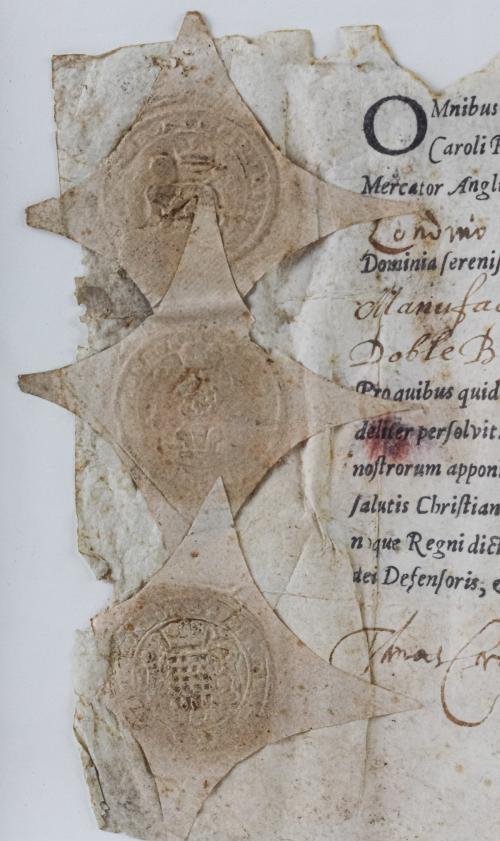 OMnibus
Caroli
Mercator Angl
Londino
Dominia sereniſ
Manufac
Doble B
Pro quibus quid
deliter perſolvit.
noſtrorum appon
ſalutis Chriſtian
nque Regni dict
dei Defenſoris,
Thomas